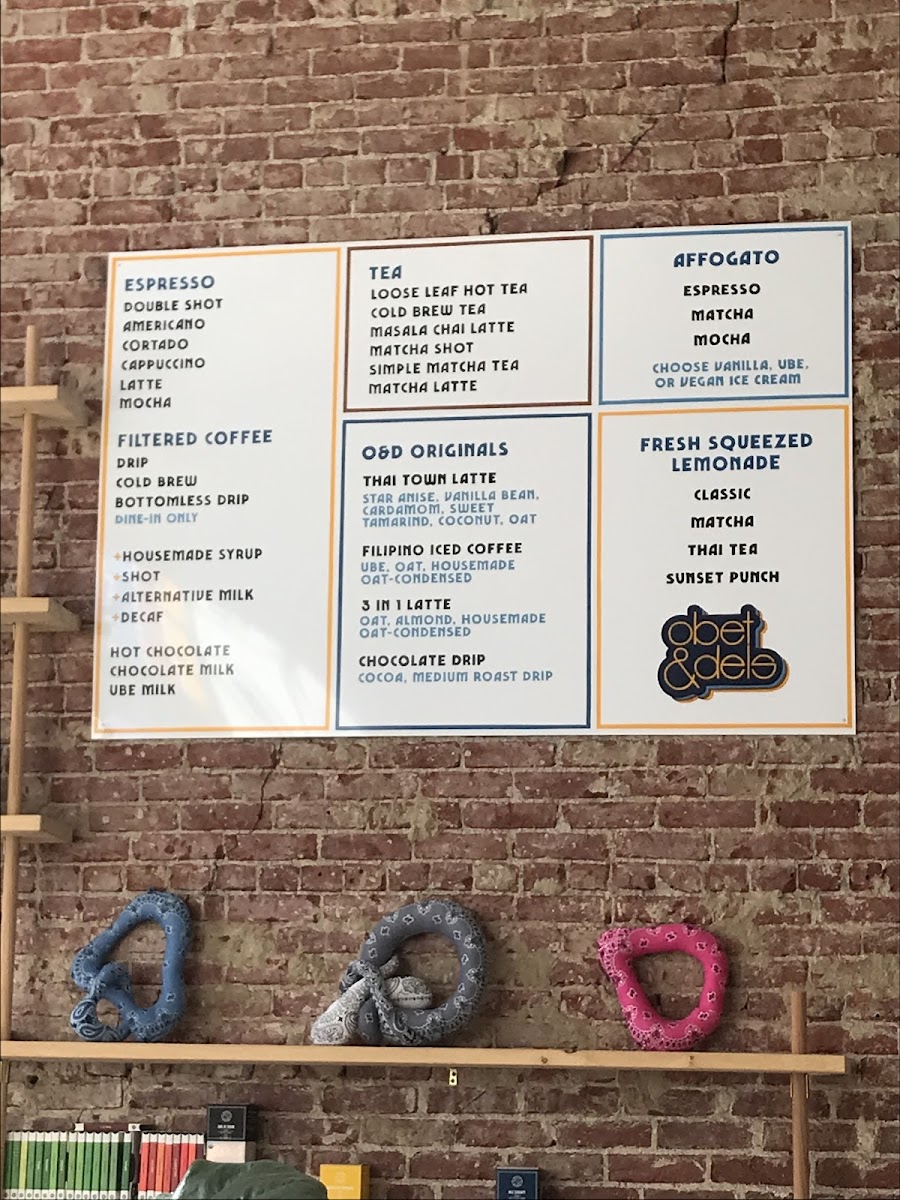 ESPRESSO
DOUBLE SHOT
AMERICANO
CORTADO
CAPPUCCINO
LATTE
MOCHA
FILTERED COFFEE
DRIP
COLD BREW
BOTTOMLESS DRIP
DINE-IN ONLY
+HOUSEMADE SYRUP
+SHOT
+ALTERNATIVE MILK
+DECAF
HOT CHOCOLATE
CHOCOLATE MILK
UBE MILK
TEA
LOOSE LEAF HOT TEA
COLD BREW TEA
MASALA CHAI LATTE
MATCHA SHOT
SIMPLE MATCHA TEA
MATCHA LATTE
O&D ORIGINALS
THAI TOWN LATTE
STAR ANISE, VANILLA BEAN,
CARDAMOM, SWEET
TAMARIND, COCONUT, OAT
FILIPINO ICED COFFEE
UBE, OAT, HOUSEMADE
OAT-CONDENSED
3 IN 1 LATTE
OAT, ALMOND, HOUSEMADE
OAT-CONDENSED
CHOCOLATE DRIP
COCOA, MEDIUM ROAST DRIP
AFFOGATO
ESPRESSO
MATCHA
MOCHA
CHOOSE VANILLA, UBE,
OR VEGAN ICE CREAM
FRESH SQUEEZED
LEMONADE
CLASSIC
MATCHA
THAI TEA
SUNSET PUNCH
obet
&dels